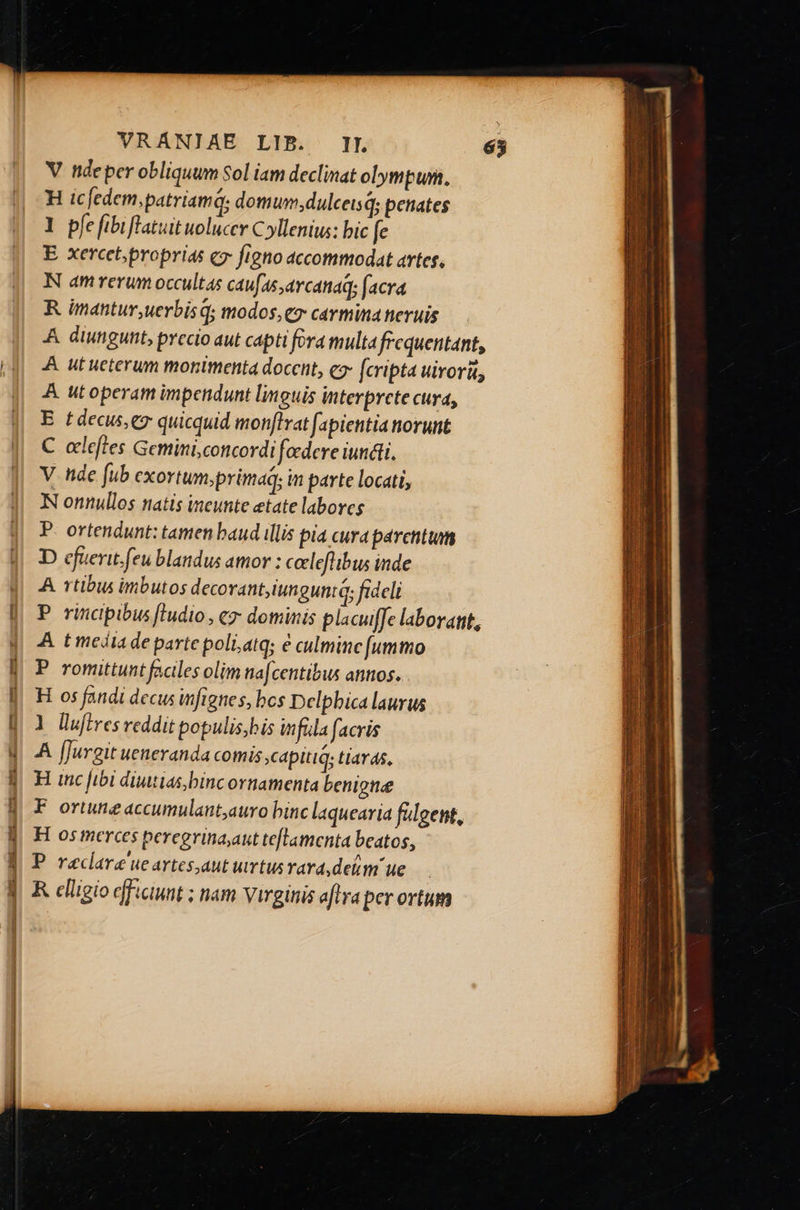 VRANIAE LIB. II. 63
V nde per obliquum Sol iam declinat olympum.
H ic ſedem, patriamq; domum, dulceisq; penates
I pſe ſibi ſtatuit uolucer Cyllenius: hic ſe
E xercet, proprias & ſigno accommodat artes.
N am rerum occultas cauſas, arcanaq; ſacra
R imantur, uerbisq; modos, & carmina neruis
A diungunt, precio aut capti fora multa frequentant,
A ut ueterum monimenta docent, & ſcripta uirorū,
A ut operam impendunt linguis interprete cura,
E t decus, & quicquid monſtrat ſapientia norunt
C œleſtes Gemini, concordi fœdere iuncti.
V nde ſub exortum, primaq; in parte locati,
N onnullos natis ineunte etate labores
P ortendunt: tamen haud illis pia cura parentum
D efuerit. ſeu blandus amor : cœleſtibus inde
A rtibus imbutos decorant, iunguntq; fideli
P rincipibus ſtudio, & dominis placuiſſe laborant,
A t media de parte poli, atq; è culmine ſummo
P romittunt faciles olim naſcentibus annos.
H os fandi decus inſignes, hos Delphica laurus
I lluſtres reddit populis, his infula ſacris
A ſſurgit ueneranda comis, capitiq; tiaras.
H inc ſibi diuitias, hinc ornamenta benignę
F ortunę accumulant, auro hinc laquearia fulgent,
H os merces peregrina, aut teſtamenta beatos,
P ręclarę ue artes, aut uirtus rara, deûm ue
R elligio efficiunt ; nam Virginis aſtra per ortum